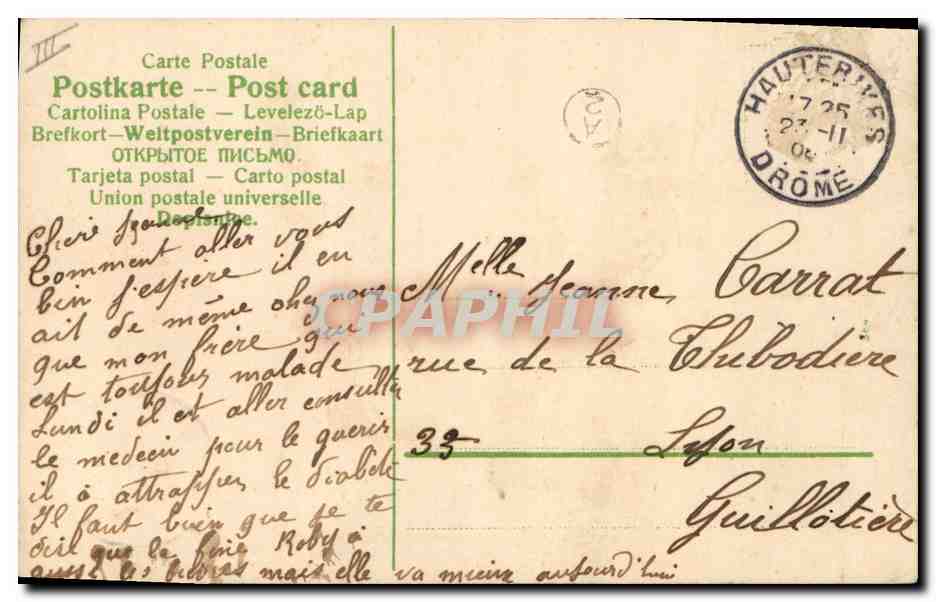 III
Carte Postale
Postkarte -- Post card
Cartolina Postale — Levelező-Lap
Brefkort—Weltpostverein—Briefkaart
ОТКРЫТОЕ ПИСЬМО.
Tarjeta postal — Carto postal
Union postale universelle
Dopisnice.
HAUTERIVES
17 25
23 -11
DROME
Chere
Comment aller vous
bin j'espère il en
ait de même chez nous
que mon frère qui
est toujours malade
Lundi il et aller consulter
le medecin pour le guerir
il à attrapper le diabète
Il faut bien que je te
dire que la Roby à
mais elle va mieux aujourd'hui
Melle Jeanne Carrat
rue de la Thibodière
33 Lyon
Guillotière
CPAPHIL